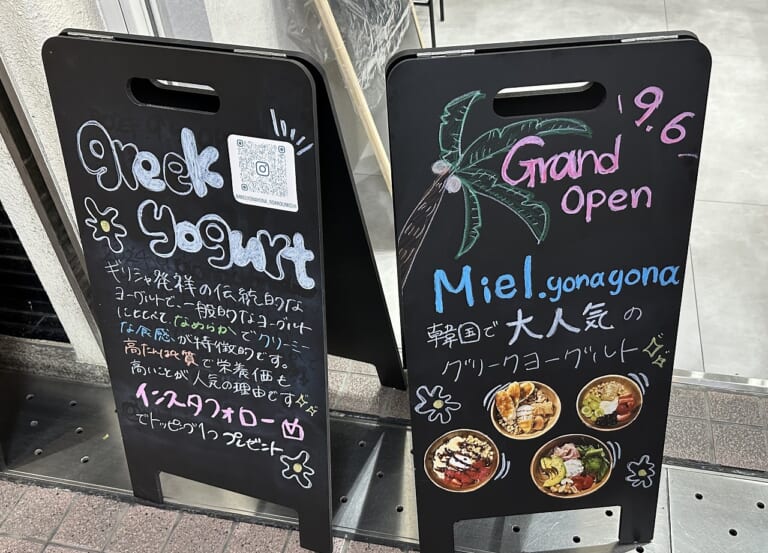 greek
yogurt
ギリシャ発祥の伝統的な
ヨーグルトで、一般的なヨーグルト
にくらべて、なめらかでクリーミー
な食感が特徴的です。
高たんぱく質で栄養価も
高いことが人気の理由です
インスタフォロー
でトッピング1つプレゼント
9.6
Grand
Open
Miel.yonayona
韓国で大人気の
グリークヨーグルト